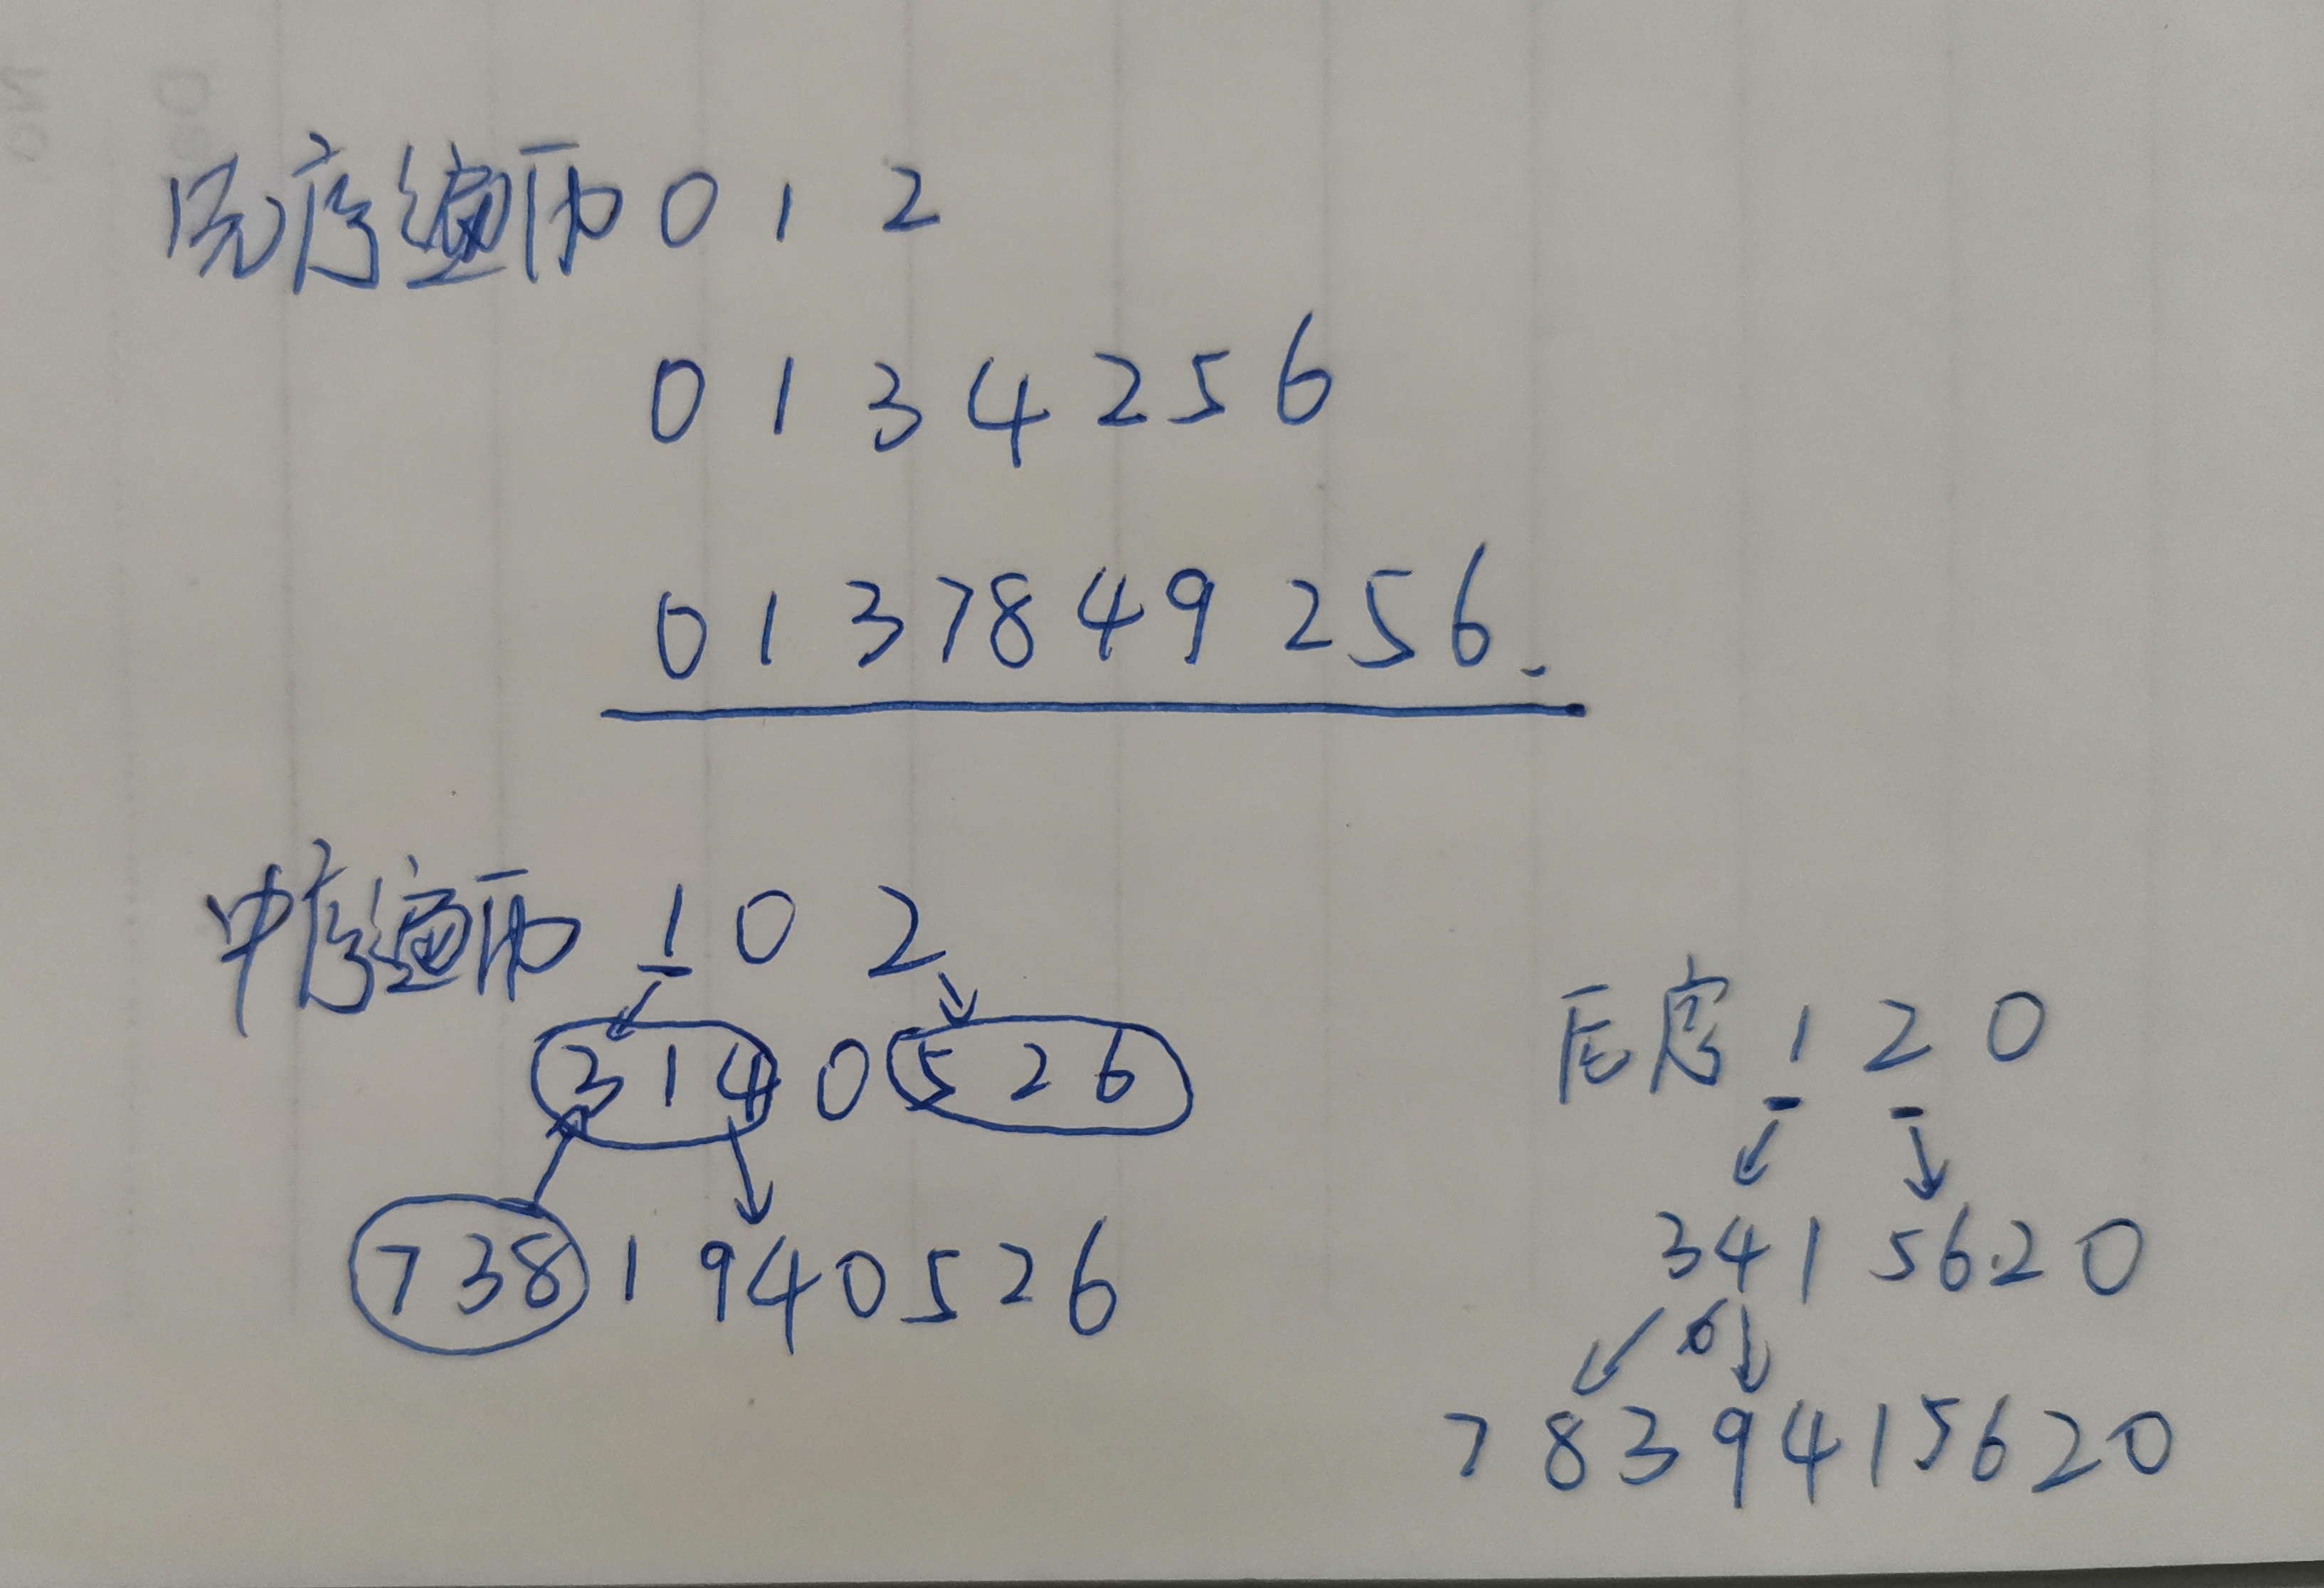 先序遍历 0 1 2
0 1 3 4 2 5 6
0 1 3 7 8 4 9 2 5 6.
中序遍历 1 0 2
3 1 4 0 5 2 6
7 3 8 1 9 4 0 5 2 6
后序 1 2 0
3 4 1 5 6 2 0
7 8 3 9 4 1 5 6 2 0